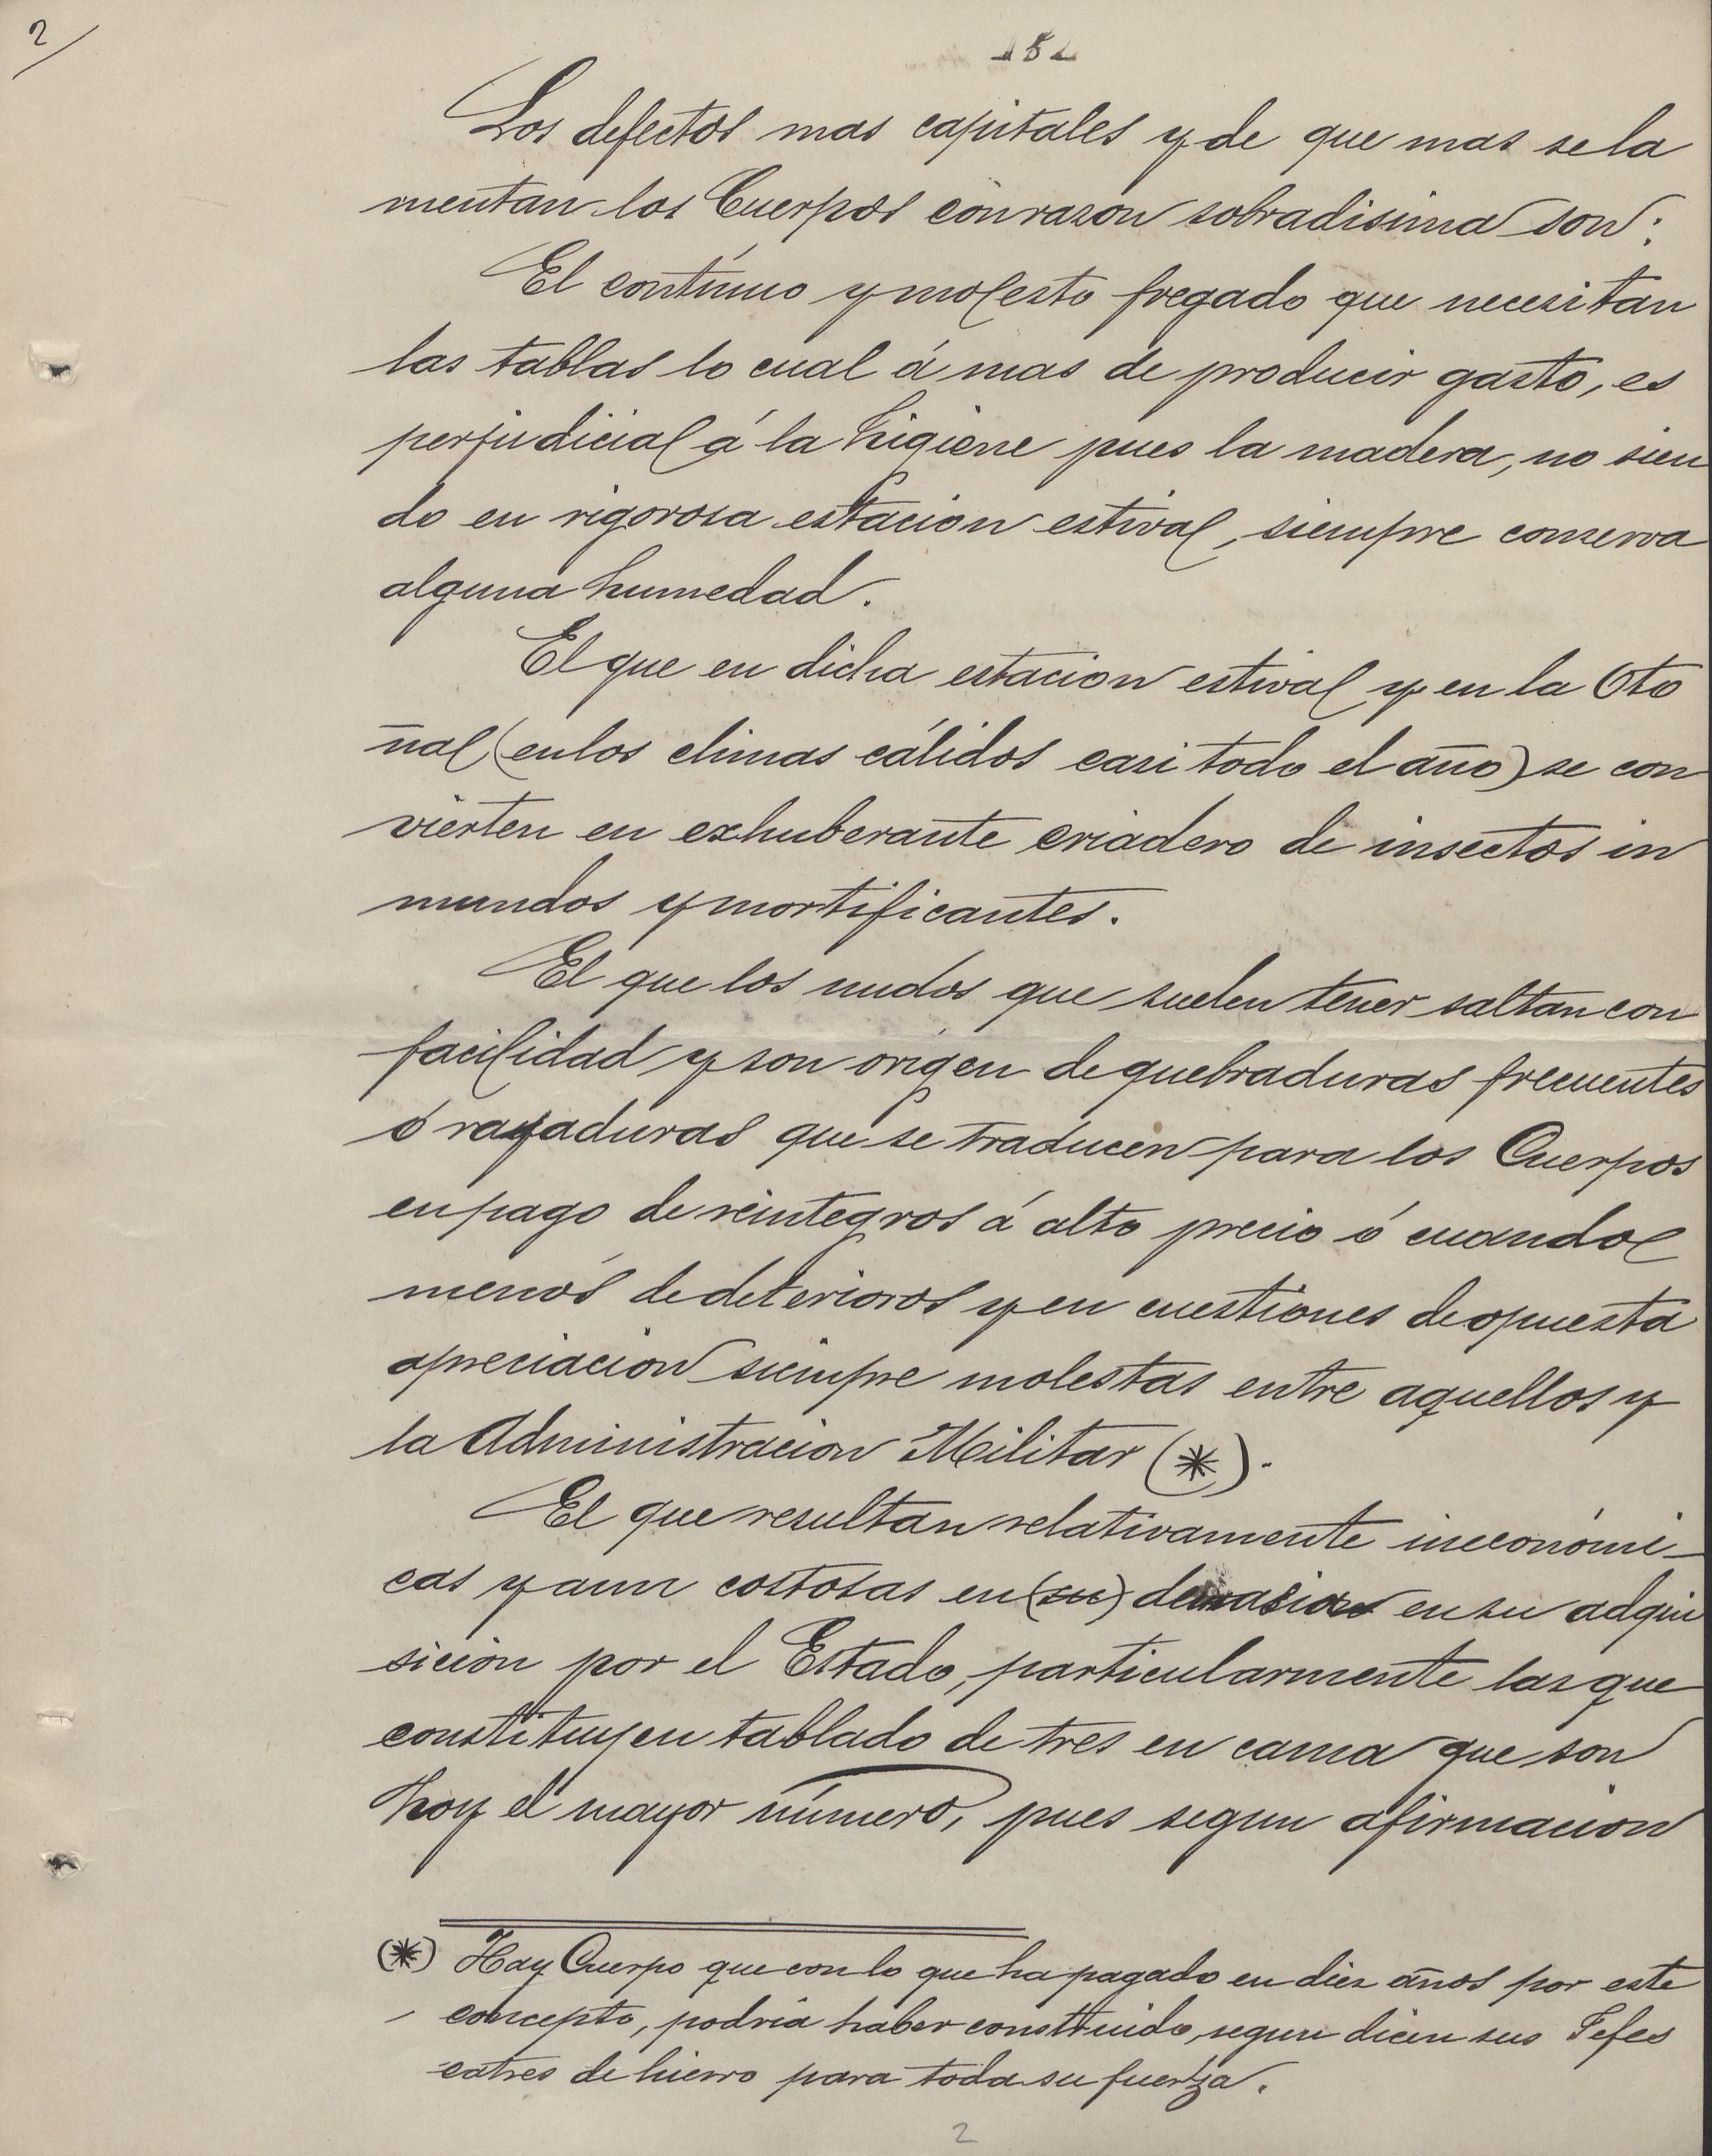 2/
Los defectos mas capitales y de que mas se la
mentan los Cuerpos con razon sobradisima son:
El contínuo y molesto fregado que necesitan
las tablas lo cual á mas de producir gasto, es
perjudicial á la higiene pues la madera, no sien
do en rigorosa estacion estival, siempre conserva
alguna humedad.
El que en dicha estacion estival y en la Oto
ñal (en los climas cálidos casi todo el año) se con
vierten en exhuberante criadero de insectos in
mundos y mortificantes.
El que los nudos que suelen tener saltan con
facilidad y son orígen de quebraduras frecuentes
ó rayaduras que se traducen para los Cuerpos
en pago de reintegros á alto precio ó cuando
menos de deterioros y en cuestiones de opuesta
apreciacion siempre molestas entre aquellos y
la Administracion Militar (*).
El que resultan relativamente ineconómi-
cas y aun costosas en (su) demasia en su adqui
sicion por el Estado, particularmente las que
constituyen tablado de tres en cama que son
hoy el mayor número, pues segun afirmacion
(*) Hay Cuerpo que con lo que ha pagado en diez años por este
concepto, podria haber construido, segun dicen sus Jefes
catres de hierro para toda su fuerza.
2